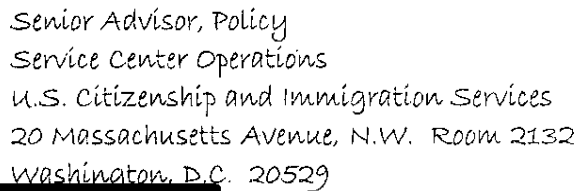 Senior Advisor, Policy
Service Center Operations
U.S. Citizenship and Immigration Services
20 Massachusetts Avenue, N.W. Room 2132
Washington, D.C. 20529